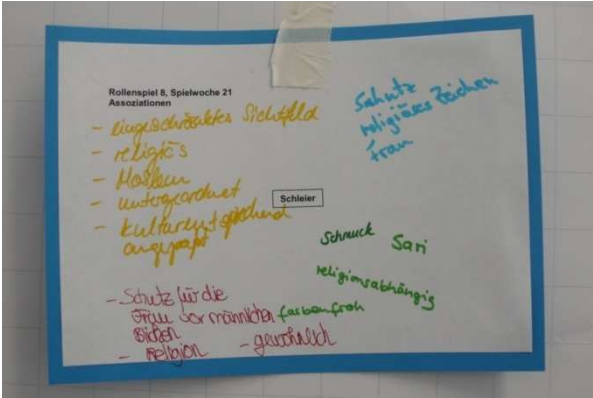 Rollenspiel 8, Spielwoche 21
Assoziationen
- eingeschränktes Sichtfeld
- religiös
- Moslem
- untergeordnet
- kulturentsprechend
angepasst
Schutz
religiöses Zeichen
Frau
Schleier
Schmuck Sari
religionsabhängig
farbenfroh
- Schutz für die
Frau vor männlichen
Blicken
- Religion - gewöhnlich